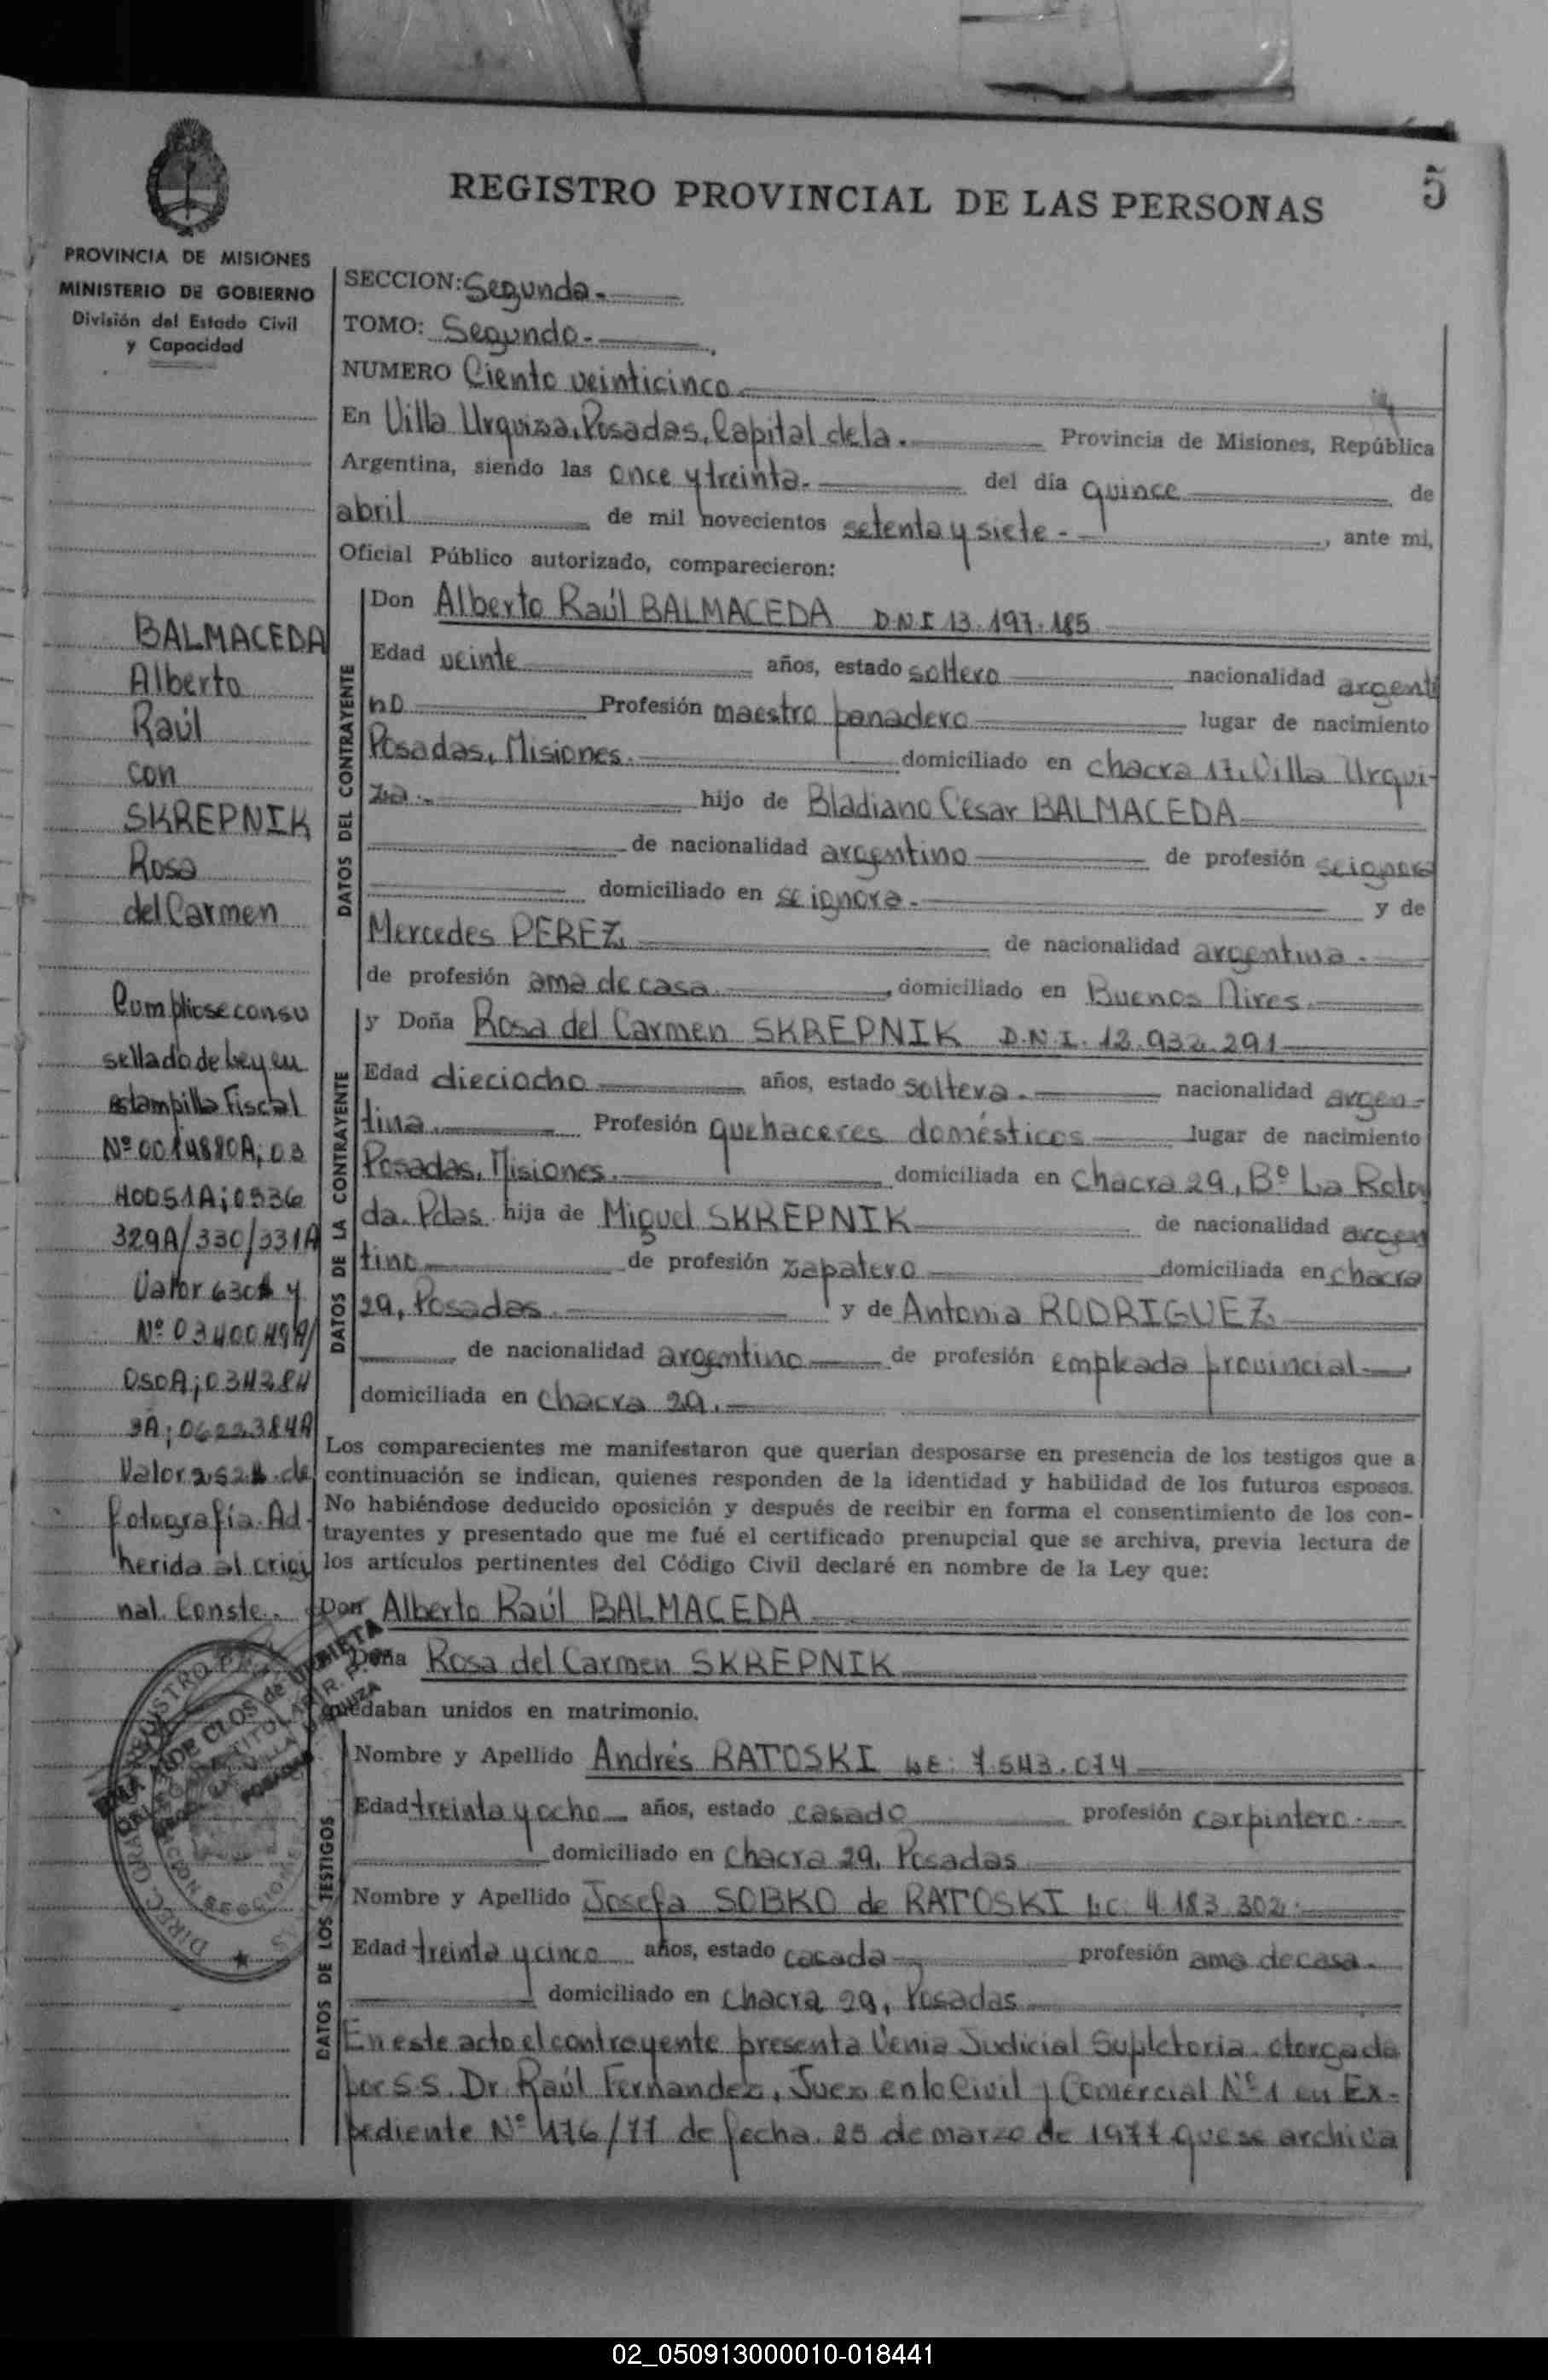 REGISTRO PROVINCIAL DE LAS PERSONAS
5
PROVINCIA DE MISIONES
MINISTERIO DE GOBIERNO
División del Estado Civil
y Capacidad
SECCION: Segunda.
TOMO: Segundo.
NUMERO Ciento veinticinco
En Villa Urquiza, Posadas, Capital de la. Provincia de Misiones, República
Argentina, siendo las once y treinta. del día quince de
abril de mil novecientos setenta y siete - , ante mi,
Oficial Público autorizado, comparecieron:
BALMACEDA
Alberto
Raúl
con
SKREPNIK
Rosa
del Carmen
Cumpliose con su
sellado de Ley en
estampilla Fiscal
Nº 0014880A; 03
40051A; 0536
329A/330/331A
Valor 630$ y
Nº 0340049A/
050A; 034284
9A; 0622384A
Valor 252$. de
fotografía. Ad-
herida al origi
nal. Conste.
DATOS DEL CONTRAYENTE
Don Alberto Raúl BALMACEDA D.N.I 13.197.185
Edad veinte años, estado soltero nacionalidad argenti
no Profesión maestro panadero lugar de nacimiento
Posadas, Misiones. domiciliado en chacra 17, Villa Urqui-
za.- hijo de Bladiano Cesar BALMACEDA
de nacionalidad argentino de profesión se ignora
domiciliado en se ignora. y de
Mercedes PEREZ de nacionalidad argentina.
de profesión ama de casa , domiciliado en Buenos Aires.
DATOS DE LA CONTRAYENTE
y Doña Rosa del Carmen SKREPNIK D.N.I. 12.932.291
Edad dieciocho años, estado soltera. nacionalidad argen-
tina. Profesión quehaceres domésticos lugar de nacimiento
Posadas, Misiones. domiciliada en chacra 29, Bº La Roto
da. Pdas. hija de Miguel SKREPNIK de nacionalidad argen
tino de profesión zapatero domiciliada en chacra
29, Posadas. y de Antonia RODRIGUEZ
de nacionalidad argentino de profesión empleada provincial
domiciliada en chacra 29.
Los comparecientes me manifestaron que querían desposarse en presencia de los testigos que a
continuación se indican, quienes responden de la identidad y habilidad de los futuros esposos.
No habiéndose deducido oposición y después de recibir en forma el consentimiento de los con-
trayentes y presentado que me fué el certificado prenupcial que se archiva, previa lectura de
los artículos pertinentes del Código Civil declaré en nombre de la Ley que:
Don Alberto Raúl BALMACEDA
Doña Rosa del Carmen SKREPNIK
quedaban unidos en matrimonio.
DATOS DE LOS TESTIGOS
Nombre y Apellido Andrés RATOSKI L.E: 7.543.074
Edad treinta y ocho años, estado casado profesión carpintero.
domiciliado en chacra 29, Posadas
Nombre y Apellido Josefa SOBKO de RATOSKI L.C. 4.183.302.
Edad treinta y cinco años, estado casada profesión ama de casa.
domiciliado en chacra 29, Posadas
En este acto el contrayente presenta Venia Judicial Supletoria otorgada
por S.S. Dr. Raúl Fernandez, Juez en lo Civil y Comercial Nº 1 en Ex-
pediente Nº 476/77 de fecha. 25 de marzo de 1977 que se archiva
02_050913000010-018441